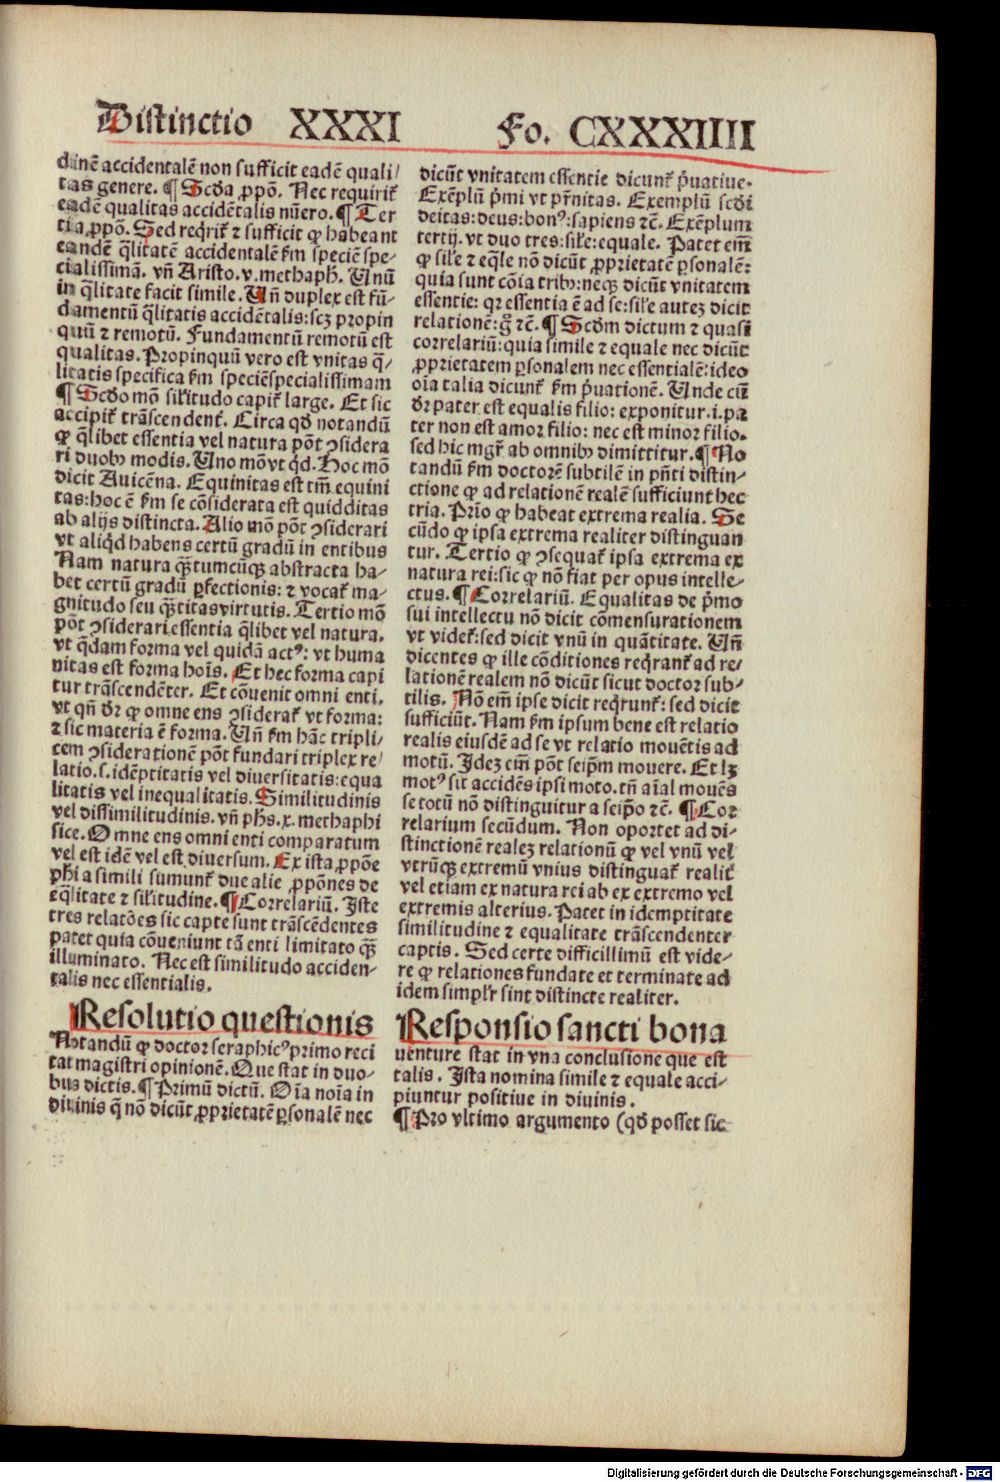 Distinctio XXXI Fo. CXXXIIII
dinē accidentalē non sufficit eadē quali/
tas genere. ¶ Scd̄a ꝓpō. Nec requirit᷑
eadē qualitas accidētalis nūero. ¶ Ter
tia ꝓpō. Sed reqͥrit᷑ ⁊ sufficit ꝙ habeant
eandē qͣlitatē accidentalē ẜm speciē spe-
cialissimā. vn̄ Aristo. v. methapħ. Unū
in qͣlitate facit simile. Un̄ duplex est fū-
damentū qͣlitatis accidētalis: scꝫ propin
quū ⁊ remotū. Fundamentū remotū est
qualitas. Propinquū vero est vnitas qͣ-
litatis specifica ẜm speciēspecialissimam
¶ Scd̄o mō sił'itudo capit᷑ large. Et sic
accipit᷑ trāscendent᷑. Circa qd̄ notandū
ꝙ qͣlibet essentia vel natura pōt ꝯsidera
ri duobꝰ modis. Uno mō vt qͥd. Hoc mō
dicit Auicēna. Equinitas est tm̄ equini
tas: hoc ē ẜm se cōsiderata est quidditas
ab alijs distincta. Alio mō pōt ꝯsiderari
vt aliqͥd habens certū gradū in entibus
Nam natura qͣꝫtumcūqꝫ abstracta ha-
bet certū gradū ꝑfectionis: ⁊ vocat᷑ ma-
gnitudo seu qͣꝫtitas virtutis. Tertio mō
pōt ꝯsiderari essentia qͣlibet vel natura.
vt qͣdam forma vel quidā actꝰ: vt huma
nitas est forma hoīs. Et hec forma capi
tur trāscendēter. Et cōuenit omni enti.
vt qn̄ dr̄ ꝙ omne ens ꝯsiderat᷑ vt forma:
⁊ sic materia ē forma. Un̄ ẜm hāc tripli-
cem ꝯsiderationē pōt fundari triplex re/
latio. s. idēptitatis vel diuersitatis: equa
litatis vel inequalitatis. Similitudinis
vel dissimilitudinis. vn̄ pħs. x. methaphi
sice. Omne ens omni enti comparatum
vel est idē vel est diuersum. Ex ista ꝓpōe
pħi a simili sumunt᷑ due alie ꝓpōnes de
eqͣlitate ⁊ sił'itudine. ¶ Correlariū. Iste
tres relatōes sic capte sunt trāscēdentes
patet quia cōueniunt tā enti limitato qͣꝫ
illuminato. Nec est similitudo acciden-
talis nec essentialis.
Resolutio questionis
Notandū ꝙ doctor seraphicꝰ primo reci
tat magistri opinionē. Que stat in duo-
bus dictis. ¶ Primū dictū. Oīa noīa in
diuinis q̄ nō dicūt ꝓprietatē ꝑsonalē nec
dicūt vnitatem essentie dicunt᷑ pͥuatiue.
Exēplū pͥmi vt pr̄nitas. Exemplū scd̄i
deitas: deus: bonꝰ: sapiens ⁊c̄. Exēplum
tertij. vt duo tres: sił'e: equale. Patet em̄
ꝙ sił'e ⁊ eqͣle nō dicūt ꝓprietatē ꝑsonalē:
quia sunt cōia tribꝰ: neqꝫ dicūt vnitatem
essentie: qꝛ essentia ē ad se: sił'e auteꝫ dicit
relationē: gͦ ⁊c̄. ¶ Scd̄m dictum ⁊ quasi
correlariū: quia simile ⁊ equale nec dicūt
ꝓprietatem ꝑsonalem nec essentialē: ideo
oīa talia dicunt᷑ ẜm pͥuationē. Unde cū
dr̄ pater est equalis filio: exponitur. i. pa
ter non est amor filio: nec est minor filio.
sed hic mgr̄ ab omnibꝰ dimittitur. ¶ No
tandū ẜm doctorē subtilē in pn̄ti distin-
ctione ꝙ ad relationē realē sufficiunt hec
tria. Prīo ꝙ habeat extrema realia. Se
cūdo ꝙ ipsa extrema realiter distinguan
tur. Tertio ꝙ ꝯsequat᷑ ipsa extrema ex
natura rei: sic ꝙ nō fiat per opus intelle-
ctus. ¶ Correlariū. Equalitas de pͥmo
sui intellectu nō dicit cōmensurationem
vt videt᷑: sed dicit vnū in quātitate. Un̄
dicentes ꝙ ille cōditiones reqͥrant᷑ ad re/
lationē realem nō dicūt sicut doctor sub-
tilis. Nō em̄ ipse dicit reqͥrunt᷑: sed dicit
sufficiūt. Nam ẜm ipsum bene est relatio
realis eiusdē ad se vt relatio mouētis ad
motū. Ideꝫ em̄ pōt seip̄m mouere. Et lꝫ
motꝰ sit accidēs ipsi moto. tn̄ aīal mouēs
se totū nō distinguitur a seip̄o ⁊c̄. ¶ Cor
relarium secūdum. Non oportet ad di-
stinctionē realeꝫ relationū ꝙ vel vnū vel
vtrūqꝫ extremū vnius distinguat᷑ realit᷑
vel etiam ex natura rei ab ex extremo vel
extremis alterius. Patet in idemptitate
similitudine ⁊ equalitate trāscendenter
captis. Sed certe difficillimū est vide-
re ꝙ relationes fundate et terminate ad
idem simpłr sint distincte realiter.
Responsio sancti bona
uenture stat in vna conclusione que est
talis. Ista nomina simile ⁊ equale acci-
piuntur positiue in diuinis.
¶ Pro vltimo argumento (qd̄ posset sic
Digitalisierung gefördert durch die Deutsche Forschungsgemeinschaft - DFG